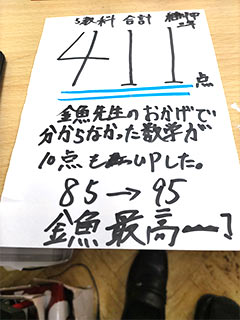 5教科 合計
2年
411点
金魚先生のおかげで
分からなかった数学が
10点もUPした。
85→95
金魚最高ー!